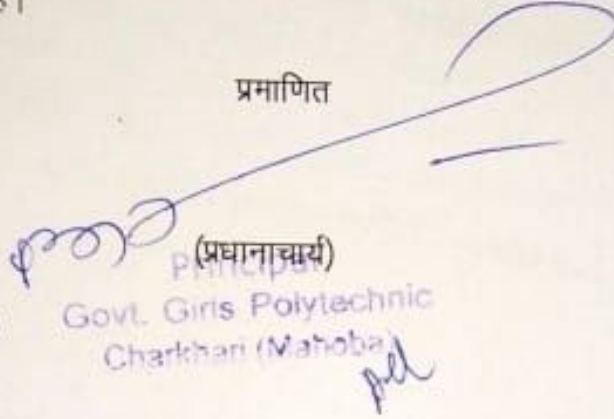 प्रमाणित
(प्रधानाचार्य)
Principal
Govt. Girls Polytechnic
Charkhari (Mahoba)